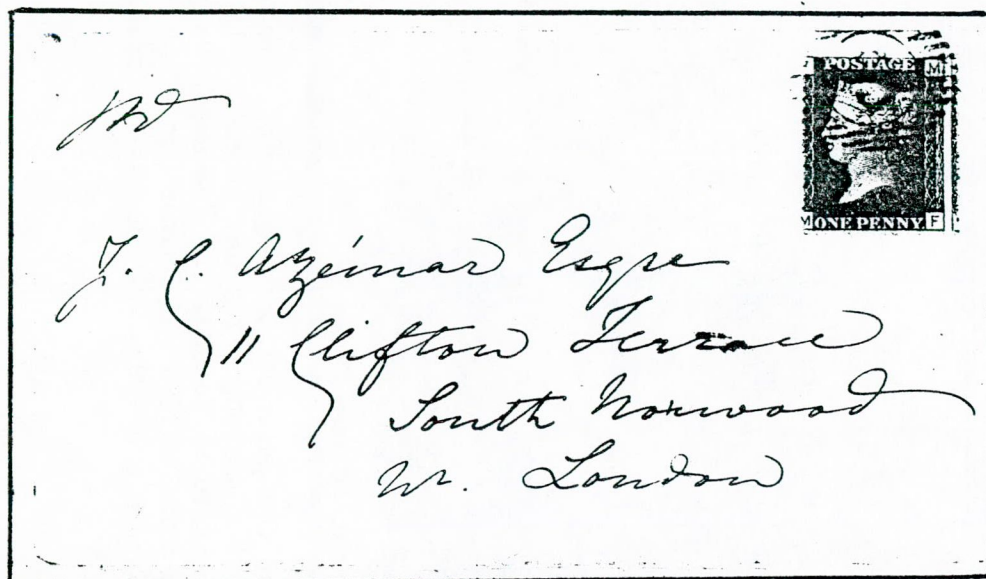 POSTAGE M
M ONE PENNY F
J. C. Azémar Esqre
11 Clifton Terrace
South Norwood
W. London